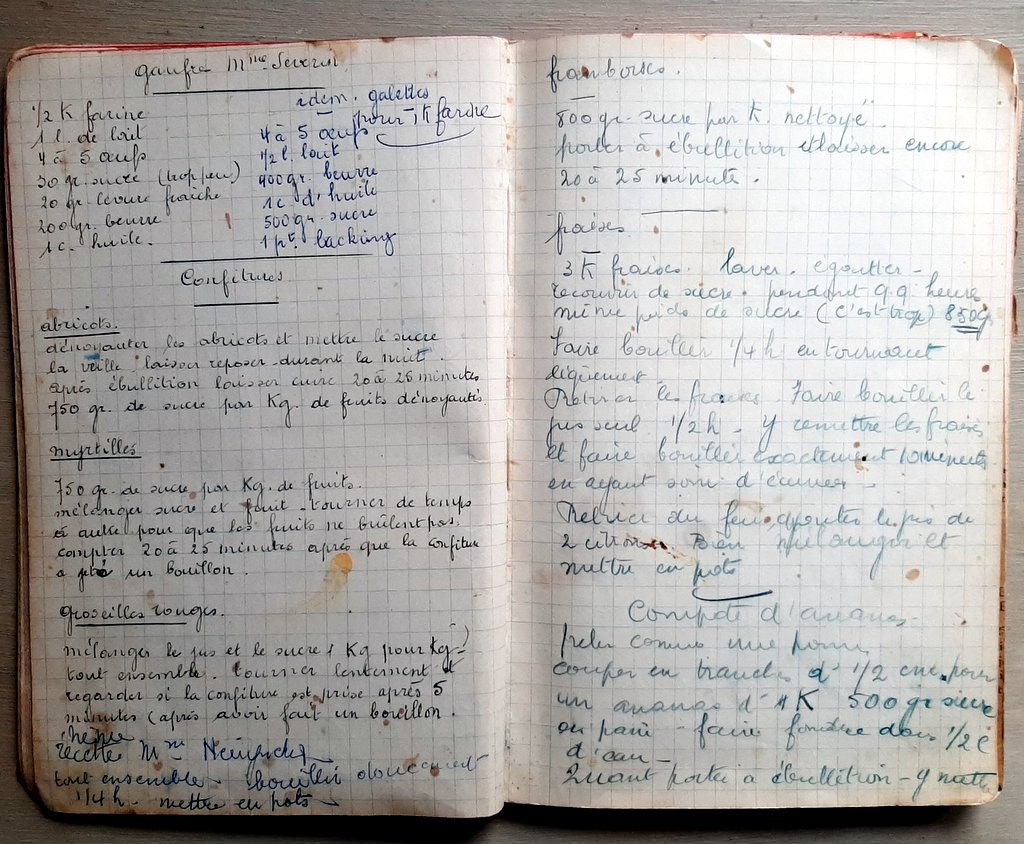 gaufre Mme Severin
1/2 K farine
1 l. de lait
4 à 5 œufs
30 gr. sucre (trop peu)
20 gr. levure fraîche
200 gr. beurre
1 c. huile.
idem. galettes
pour 1 K farine
4 à 5 œufs
1/2 l. lait
400 gr. beurre
1 c. d'huile
500 gr. sucre
1 pt. backing
Confitures
abricots.
dénoyauter les abricots et mettre le sucre
la veille, laisser reposer durant la nuit.
après ébullition laisser cuire 20 à 25 minutes
750 gr. de sucre par Kg. de fruits dénoyautés.
myrtilles
750 gr. de sucre par Kg. de fruits.
mélanger sucre et fruit - tourner de temps
à autre pour que les fruits ne brûlent pas.
compter 20 à 25 minutes après que la confiture
a un bouillon.
groseilles rouges.
mélanger le jus et le sucre 1 Kg pour Kg
tout ensemble. tourner lentement et
regarder si la confiture est prise après 5
minutes (après avoir fait un bouillon.
recette Mme
tout ensemble. bouillir doucement
1/4 h - mettre en pots
framboises.
800 gr. sucre par K. nettoyé
porter à ébullition et laisser encore
20 à 25 minutes.
fraises
3 K fraises. laver. egoutter -
recouvrir de sucre. pendant q.q. heure
même poids de sucre (c'est trop) 850 gr
Faire bouillir 1/4 h en tournant
légèrement -
Retirer les fraises. Faire bouillir le
jus seul 1/2 h - y remettre les fraises
et faire bouillir exactement 10 minutes
en ayant soin d'écumer -
Retirer du feu, ajouter le jus de
2 citrons. Bien mélanger et
mettre en pots
Compote d'ananas -
peler comme une pomme
couper en tranches d'1/2 cm. pour
un ananas d'1K 500 gr sucre
en pain - faire fondre dans 1/2 l
d'eau -
Quant porter à ébullition - y mettre